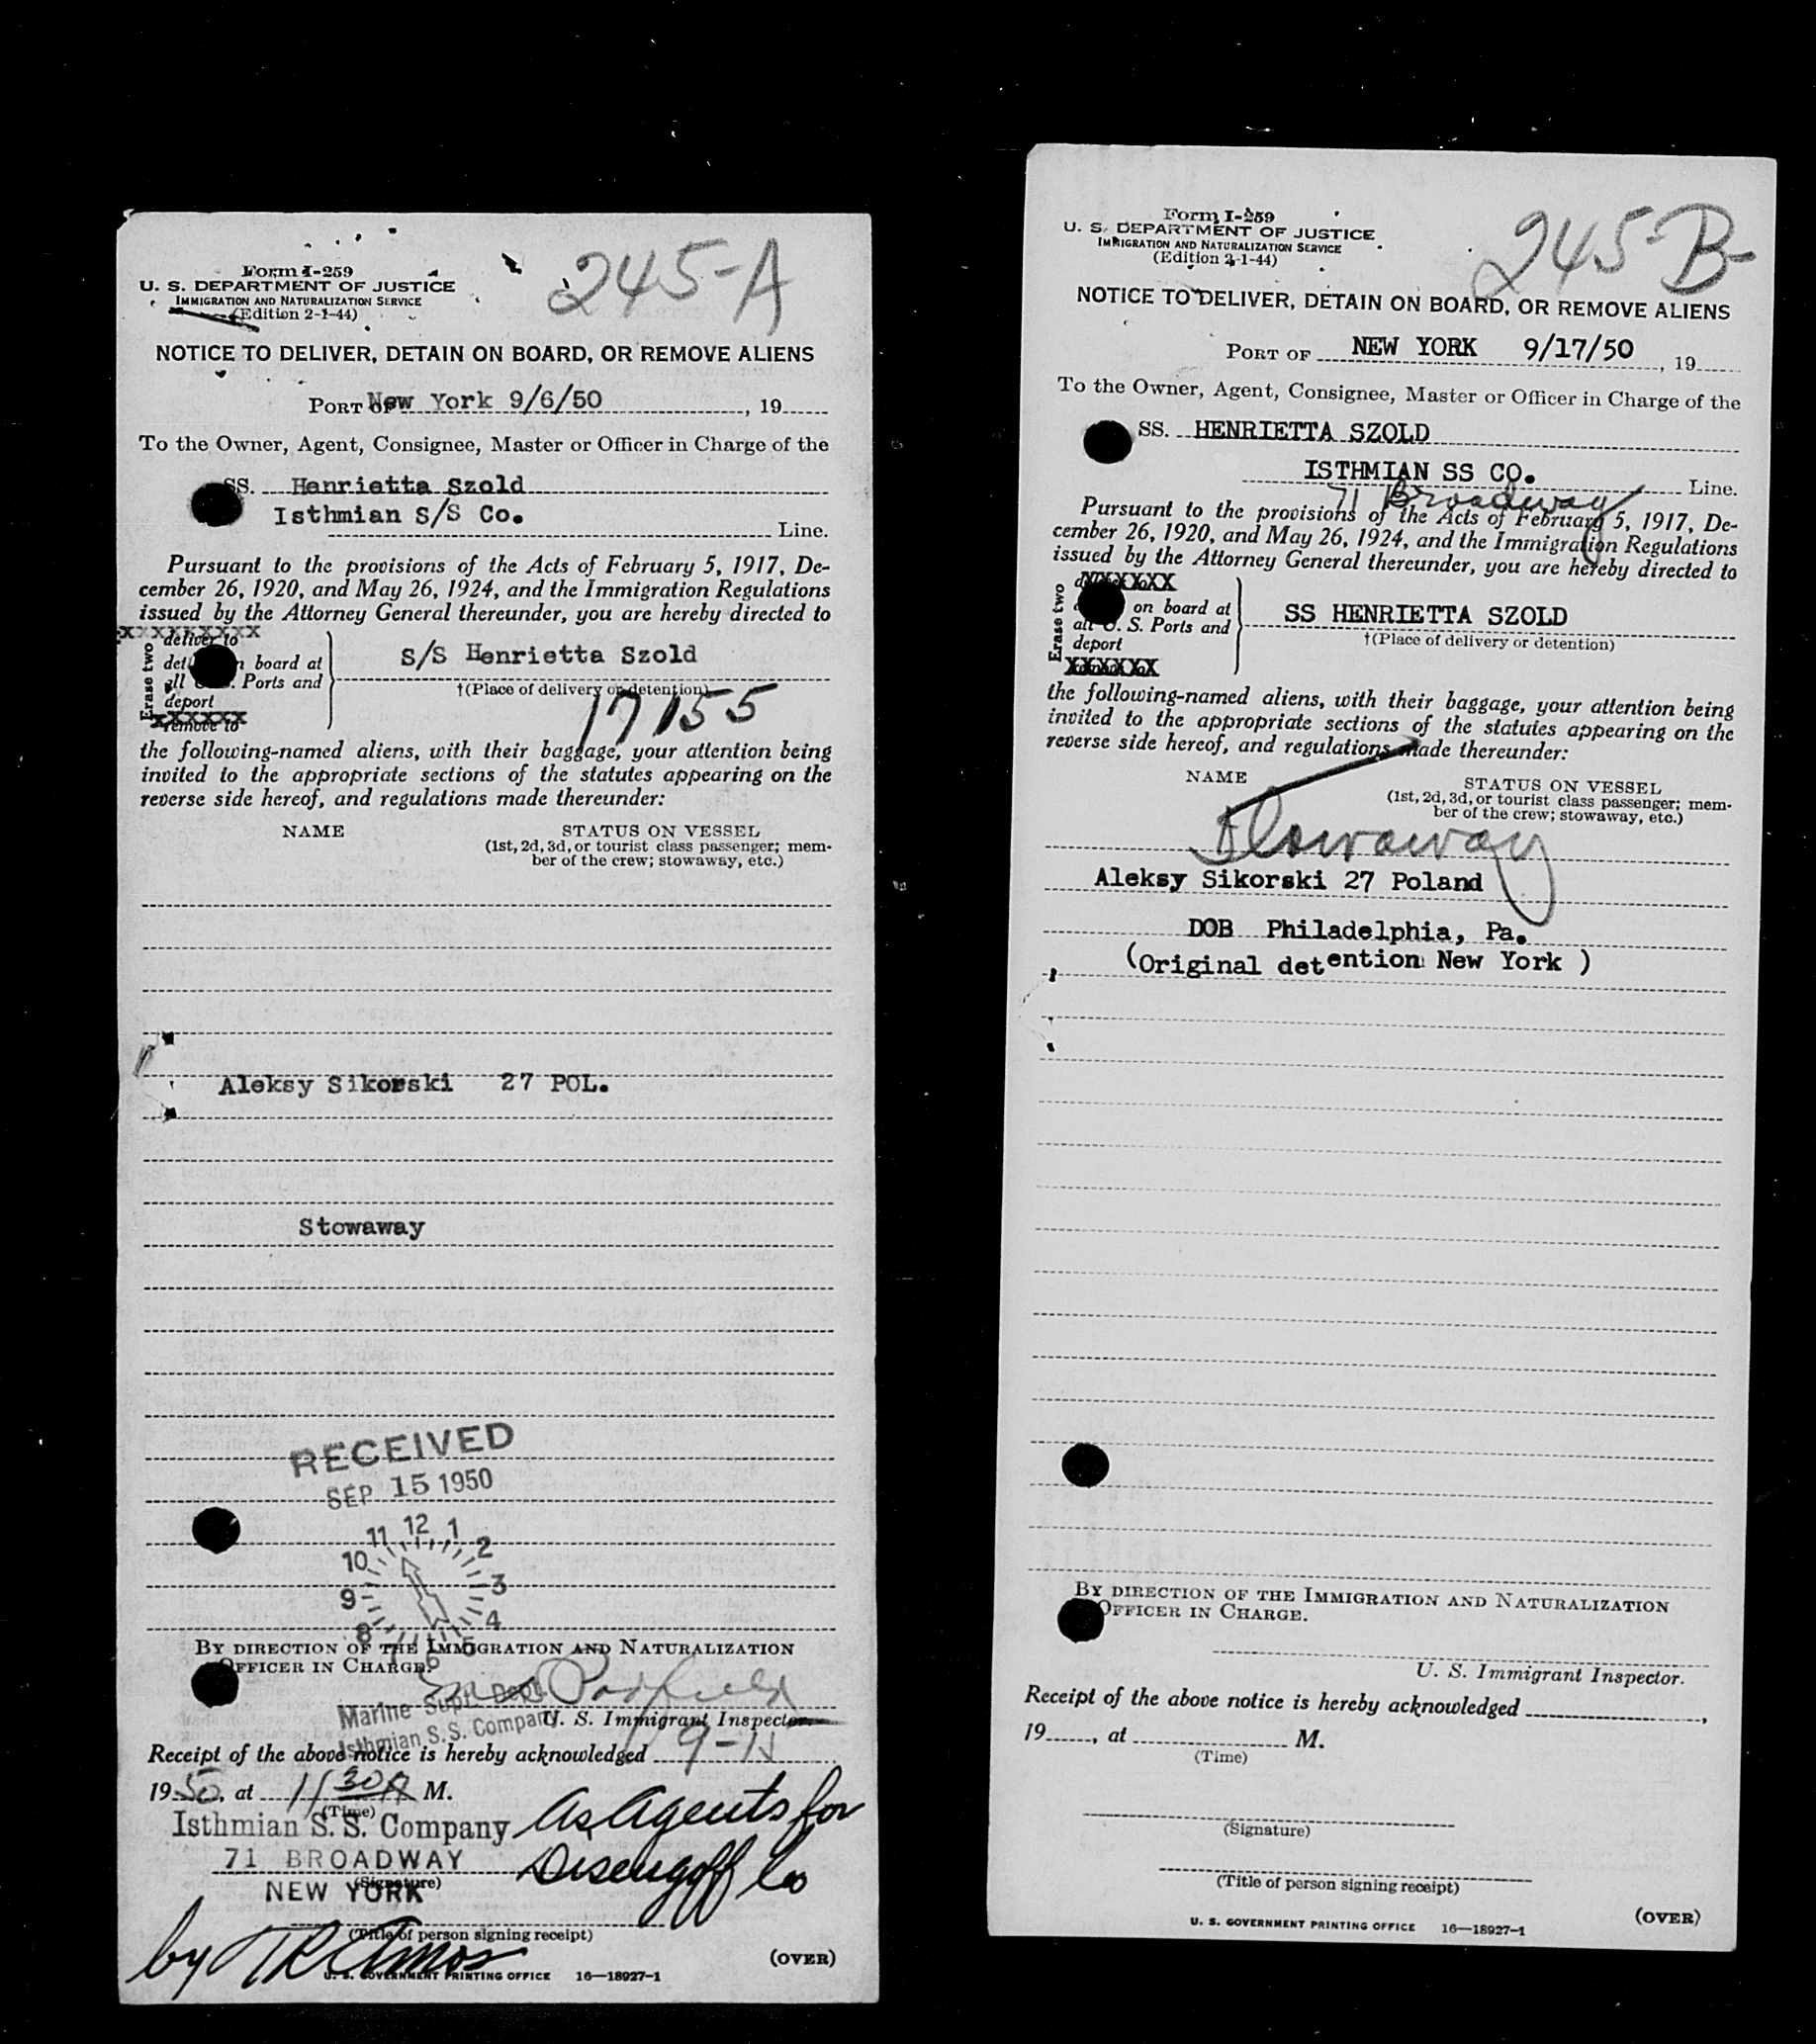 245-A
Form I-259
U. S. DEPARTMENT OF JUSTICE
IMMIGRATION AND NATURALIZATION SERVICE
(Edition 2-1-44)
NOTICE TO DELIVER, DETAIN ON BOARD, OR REMOVE ALIENS
PORT OF New York 9/6/50, 19
To the Owner, Agent, Consignee, Master or Officer in Charge of the
SS. Henrietta Szold
Isthmian S/S Co.
Line.
Pursuant to the provisions of the Acts of February 5, 1917, De-
cember 26, 1920, and May 26, 1924, and the Immigration Regulations
issued by the Attorney General thereunder, you are hereby directed to
Erase two
deliver to
board at
all Ports and
deport
remove to
S/S Henrietta Szold
†(Place of delivery or detention)
17155
the following-named aliens, with their baggage, your attention being
invited to the appropriate sections of the statutes appearing on the
reverse side hereof, and regulations made thereunder:
NAME
STATUS ON VESSEL
(1st, 2d, 3d, or tourist class passenger; mem-
ber of the crew; stowaway, etc.)
Aleksy Sikorski 27 POL.
Stowaway
RECEIVED
SEP 15 1950
12 1 2 3 4 5 6 7 8 9 10 11
BY DIRECTION OF THE IMMIGRATION AND NATURALIZATION
OFFICER IN CHARGE.
Marine Supt. Dept.
Isthmian S.S. Company
U. S. Immigrant Inspector.
Receipt of the above notice is hereby acknowledged 9-15
1950, at 11 30 A M.
(Time)
Isthmian S. S. Company As Agents for
71 BROADWAY
Dizengoff Co
(Signature)
NEW YORK
(Title of person signing receipt)
by
(OVER)
U. S. GOVERNMENT PRINTING OFFICE 16—18927-1
245-B-
Form I-259
U. S. DEPARTMENT OF JUSTICE
IMMIGRATION AND NATURALIZATION SERVICE
(Edition 2-1-44)
NOTICE TO DELIVER, DETAIN ON BOARD, OR REMOVE ALIENS
PORT OF NEW YORK 9/17/50, 19
To the Owner, Agent, Consignee, Master or Officer in Charge of the
SS. HENRIETTA SZOLD
ISTHMIAN SS CO. Line.
71 Broadway
Pursuant to the provisions of the Acts of February 5, 1917, De-
cember 26, 1920, and May 26, 1924, and the Immigration Regulations
issued by the Attorney General thereunder, you are hereby directed to
Erase two
XXXXXX
on board at
all U. S. Ports and
deport
XXXXXX
SS HENRIETTA SZOLD
†(Place of delivery or detention)
the following-named aliens, with their baggage, your attention being
invited to the appropriate sections of the statutes appearing on the
reverse side hereof, and regulations made thereunder:
NAME
STATUS ON VESSEL
(1st, 2d, 3d, or tourist class passenger; mem-
ber of the crew; stowaway, etc.)
Stowaway
Aleksy Sikorski 27 Poland
DOB Philadelphia, Pa.
(Original detention New York )
BY DIRECTION OF THE IMMIGRATION AND NATURALIZATION
OFFICER IN CHARGE.
U. S. Immigrant Inspector.
Receipt of the above notice is hereby acknowledged ,
19, at M.
(Time)
(Signature)
(Title of person signing receipt)
(OVER)
U. S. GOVERNMENT PRINTING OFFICE 16—18927-1